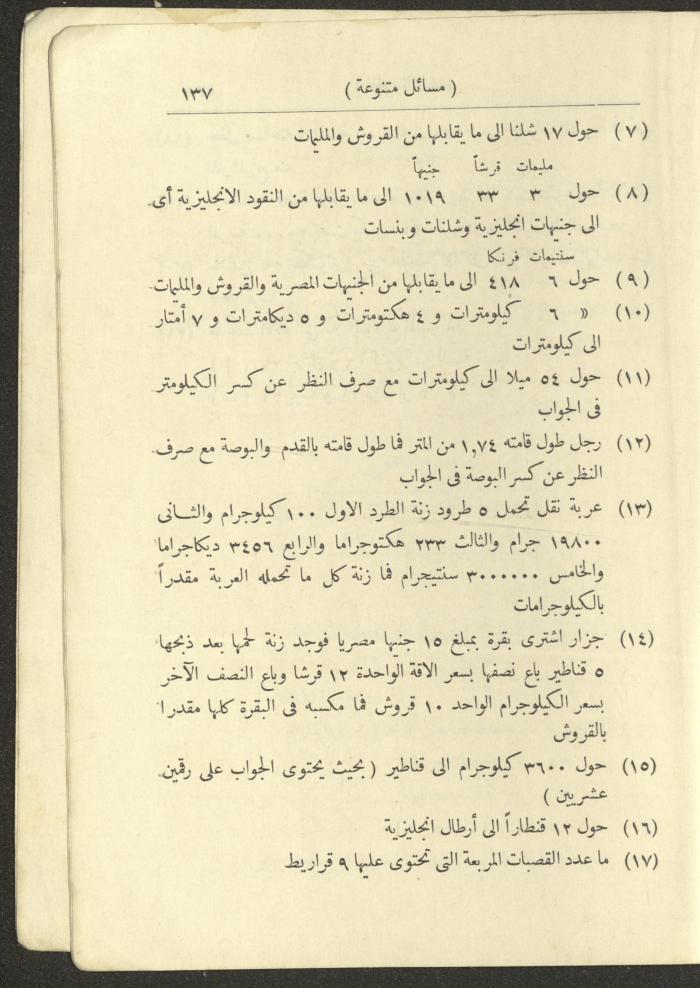 ( مسائل متنوعة ) ١٣٧
(٧) حول ١٧ شلنا الى ما يقابلها من القروش والمليمات
مليمات قرشاً جنيهاً
(٨) حول ٣ ٣٣ ١٠١٩ الى ما يقابلها من النقود الانجليزية أى
الى جنيهات انجليزية وشلنات وبنسات
سنتيمات فرنكا
(٩) حول ٦ ٤١٨ الى ما يقابلها من الجنيهات المصرية والقروش والمليمات
(١٠) » ٦ كيلومترات و ٤ هكتومترات و ٥ ديكامترات و ٧ أمتار
الى كيلومترات
(١١) حول ٥٤ ميلا الى كيلومترات مع صرف النظر عن كسر الكيلومتر
فى الجواب
(١٢) رجل طول قامته ١,٧٤ من المتر فما طول قامته بالقدم والبوصة مع صرف
النظر عن كسر البوصة فى الجواب
(١٣) عربة نقل تحمل ٥ طرود زنة الطرد الاول ١٠٠ كيلوجرام والثانى
١٩٨٠٠ جرام والثالث ٢٣٣ هكتوجراما والرابع ٣٤٥٦ ديكاجراما
والخامس ٣٠٠٠٠٠٠ سنتيجرام فما زنة كل ما تحمله العربة مقدراً
بالكيلوجرامات
(١٤) جزار اشترى بقرة بمبلغ ١٥ جنيها مصريا فوجد زنة لحمها بعد ذبحها
٥ قناطير باع نصفها بسعر الاقة الواحدة ١٢ قرشا وباع النصف الآخر
بسعر الكيلوجرام الواحد ١٠ قروش فما مكسبه فى البقرة كلها مقدرا
بالقروش
(١٥) حول ٣٦٠٠ كيلوجرام الى قناطير ( بحيث يحتوى الجواب على رقمين
عشريين )
(١٦) حول ١٢ قنطاراً الى أرطال انجليزية
(١٧) ما عدد القصبات المربعة التى تحتوى عليها ٩ قراريط